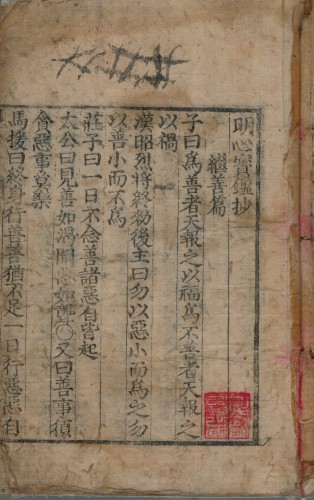 明心寶鑑抄
繼善篇
子曰爲善者天報之以福爲不善者天報之
以禍
漢昭烈將終勑後主曰勿以惡小而爲之勿
以善小而不爲
莊子曰一日不念善諸惡自皆起
太公曰見善如渴聞惡如聾〇又曰善事須
貪惡事莫樂
馬援曰終身行善善猶不足一日行惡惡自